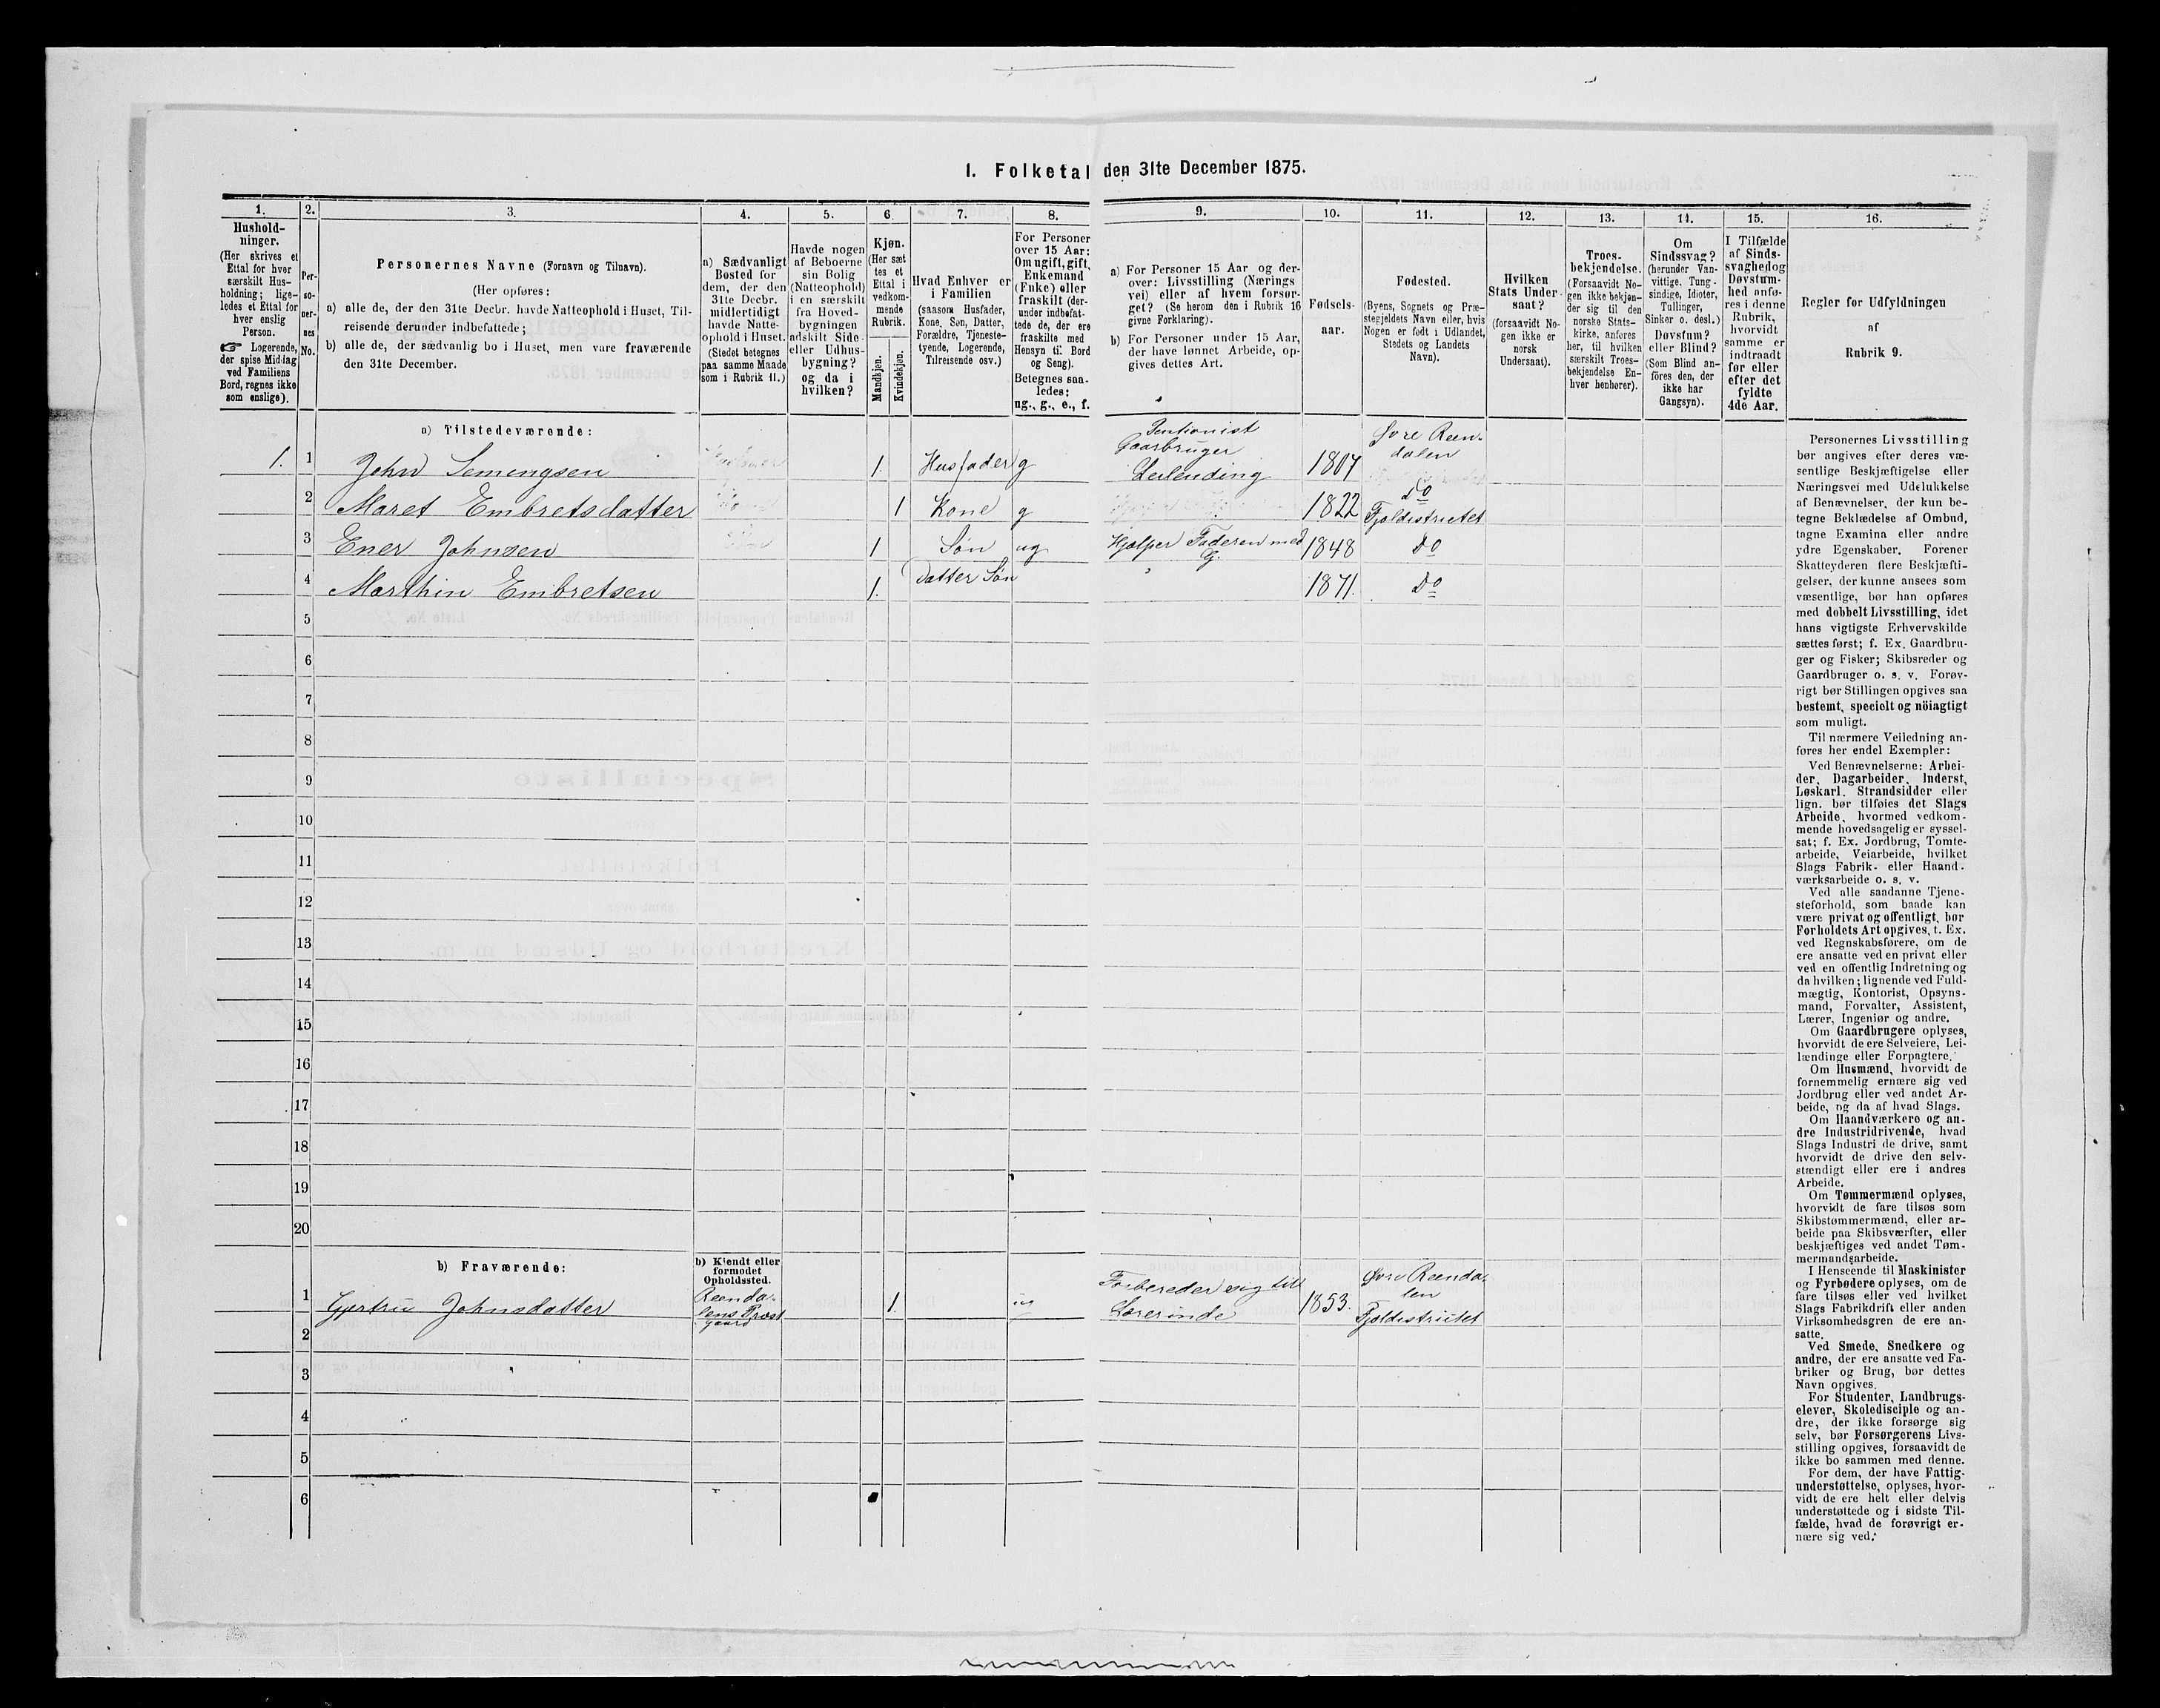 I. Folketal den 31te December 1875.
1.
Hushold-
ninger.
(Her skrives et
Ettal for hver
særskilt Hus-
holdning; lige-
ledes et Ettal for
hver enslig
Person.
☞ Logerende,
der spise Middag
ved Familiens
Bord, regnes ikke
som enslige).
2.
Per-
so-
ner-
nes
No.
3.
Personernes Navne (Fornavn og Tilnavn).
(Her opføres:
a) alle de, der den 31te Decbr. havde Natteophold i Huset, Til-
reisende derunder indbefattede;
b) alle de, der sædvanlig bo i Huset, men vare fraværende
den 31te December.
4.
a) Sædvanligt
Bosted for
dem, der den
31te Decbr.
midlertidigt
havde Natte-
ophold i Huset.
(Stedet betegnes
paa samme Maade
som i Rubrik 11.)
5.
Havde nogen
af Beboerne
sin Bolig
(Natteophold)
i en særskilt
fra Hoved-
bygningen
adskilt Side-
eller Udhus-
bygning?
og da i
hvilken?
6.
Kjøn.
(Her sæt
tes et
Ettal i
vedkom-
mende
Rubrik.
Mandkjøn.
Kvindekjøn.
7.
Hvad Enhver er
i Familien
(saasom Husfader,
Kone, Søn, Datter,
Forældre, Tjeneste-
tyende, Logerende,
Tilreisende osv.)
8.
For Personer
over 15 Aar:
Om ugift, gift,
Enkemand
(Enke) eller
fraskilt (der-
under indbefat-
tede de, der ere
fraskilte med
Hensyn til Bord
og Seng).
Betegnes saa-
ledes:
ug., g., e., f.
9.
a) For Personer 15 Aar og der-
over: Livsstilling (Nærings
vei) eller af hvem forsør-
get? (Se herom den i Rubrik 16
givne Forklaring).
b) For Personer under 15 Aar,
der have lønnet Arbeide, op-
gives dettes Art.
10.
Fødsels-
aar.
11.
Fødested.
(Byens, Sognets og Præ-
stegjeldets Navn eller, hvis
Nogen er født i Udlandet,
Stedets og Landets
Navn).
12.
Hvilken
Stats Under-
saat?
(forsaavidt No-
gen ikke er
norsk
Undersaat).
13.
Troes-
bekjendelse.
(Forsaavidt No-
gen ikke bekjen-
der sig til den
norske Stats-
kirke, anføres
her, til hvilken
særskilt Troes-
bekjendelse En-
hver henhører).
14.
Om
Sindssvag?
(herunder Van-
vittige, Tung-
sindige, Idioter,
Tullinger,
Sinker o. desl.)
Døvstum?
eller Blind?
(Som Blind an-
føres den, der
ikke har
Gangsyn).
15.
I Tilfælde
af Sinds-
svaghed og
Døvstum-
hed anfø-
res i denne
Rubrik,
hvorvidt
samme er
indtraadt
før eller
efter det
fyldte
4de Aar.
16.
Regler for Udfyldningen
af
Rubrik 9.
a) Tilstedeværende:
1. 1 John Semengsen 1. Husfader g Pentionist Gaarbruger Leilending 1807 Søre Reen-
dalen
2 Maret Embretsdatter 1 Kone g 1822 Do
Fjeldistriktet
3 Ener Johnsen 1 Søn ug Hjelper Faderen med G. 1848 Do
4 Marthin Embretsen 1. Datter Søn 1871. Do
5
6
7
8
9
10
11
12
13
14
15
16
17
18
19
20
b) Fraværende:
b) Kjendt eller
formodet
Opholdssted.
1 Gjertru Johnsdatter Reenda-
lens Præst
gaard 1. ug Forbereder sig till
Lærerinde 1853. Søre Reenda-
len
Fjeldistriktet
2
3
4
5
6
Personernes Livsstilling
bør angives efter deres væ-
sentlige Beskjæftigelse eller
Næringsvei med Udelukkelse
af Benævnelser, der kun be-
tegne Beklædelse af Ombud,
tagne Examina eller andre
ydre Egenskaber. Forener
Skatteyderen flere Beskjæfti-
gelser, der kunne ansees som
væsentlige, bør han opføres
med dobbelt Livsstilling, idet
hans vigtigste Erhvervskilde
sættes først; f. Ex. Gaardbru-
ger og Fisker; Skibsreder og
Gaardbruger o. s. v. Forøv-
rigt bør Stillingen opgives saa
bestemt, specielt og nöiagtigt
som muligt.
Til nærmere Veiledning an-
føres her endel Exempler:
Ved Benævnelserne: Arbei-
der, Dagarbeider, Inderst,
Løskarl, Strandsidder eller
lign. bør tilføies det Slags
Arbeide, hvormed vedkom-
mende hovedsagelig er syssel-
sat; f. Ex. Jordbrug, Tomte-
arbeide, Veiarbeide, hvilket
Slags Fabrik- eller Haand-
værksarbeide o. s. v.
Ved alle saadanne Tjene-
steforhold, som baade kan
være privat og offentligt, bør
Forholdets Art opgives, t. Ex.
ved Regnskabsførere, om de
ere ansatte ved en privat eller
ved en offentlig Indretning og
da hvilken; lignende ved Fuld-
mægtig, Kontorist, Opsyns-
mand, Forvalter, Assistent,
Lærer, Ingeniør og andre.
Om Gaardbrugere oplyses,
hvorvidt de ere Selveiere, Lei-
lændinge eller Forpagtere.
Om Husmænd, hvorvidt de
fornemmelig ernære sig ved
Jordbrug eller ved andet Ar-
beide, og da af hvad Slags.
Om Haandværkere og an-
dre Industridrivende, hvad
Slags Industri de drive, samt
hvorvidt de drive den selv-
stændigt eller ere i andres
Arbeide.
Om Tømmermænd oplyses,
hvorvidt de fare tilsøs som
Skibstømmermænd, eller ar-
beide paa Skibsværfter, eller
beskjæftiges ved andet Tøm-
mermandsarbeide.
I Henseende til Maskinister
og Fyrbødere oplyses, om de
fare tilsøs eller ved hvilket
Slags Fabrikdrift eller anden
Virksomhedsgren de ere an-
satte.
Ved Smede, Snedkere og
andre, der ere ansatte ved Fa-
briker og Brug, bør dettes
Navn opgives.
For Studenter, Landbrugs-
elever, Skoledisciple og an-
dre, der ikke forsørge sig
selv, bør Forsørgerens Livs-
stilling opgives, forsaavidt de
ikke bo sammen med denne.
For dem, der have Fattig-
understøttelse, oplyses, hvor-
vidt de ere helt eller delvis
understøttede og i sidste Til-
fælde, hvad de forøvrigt er-
nære sig ved.